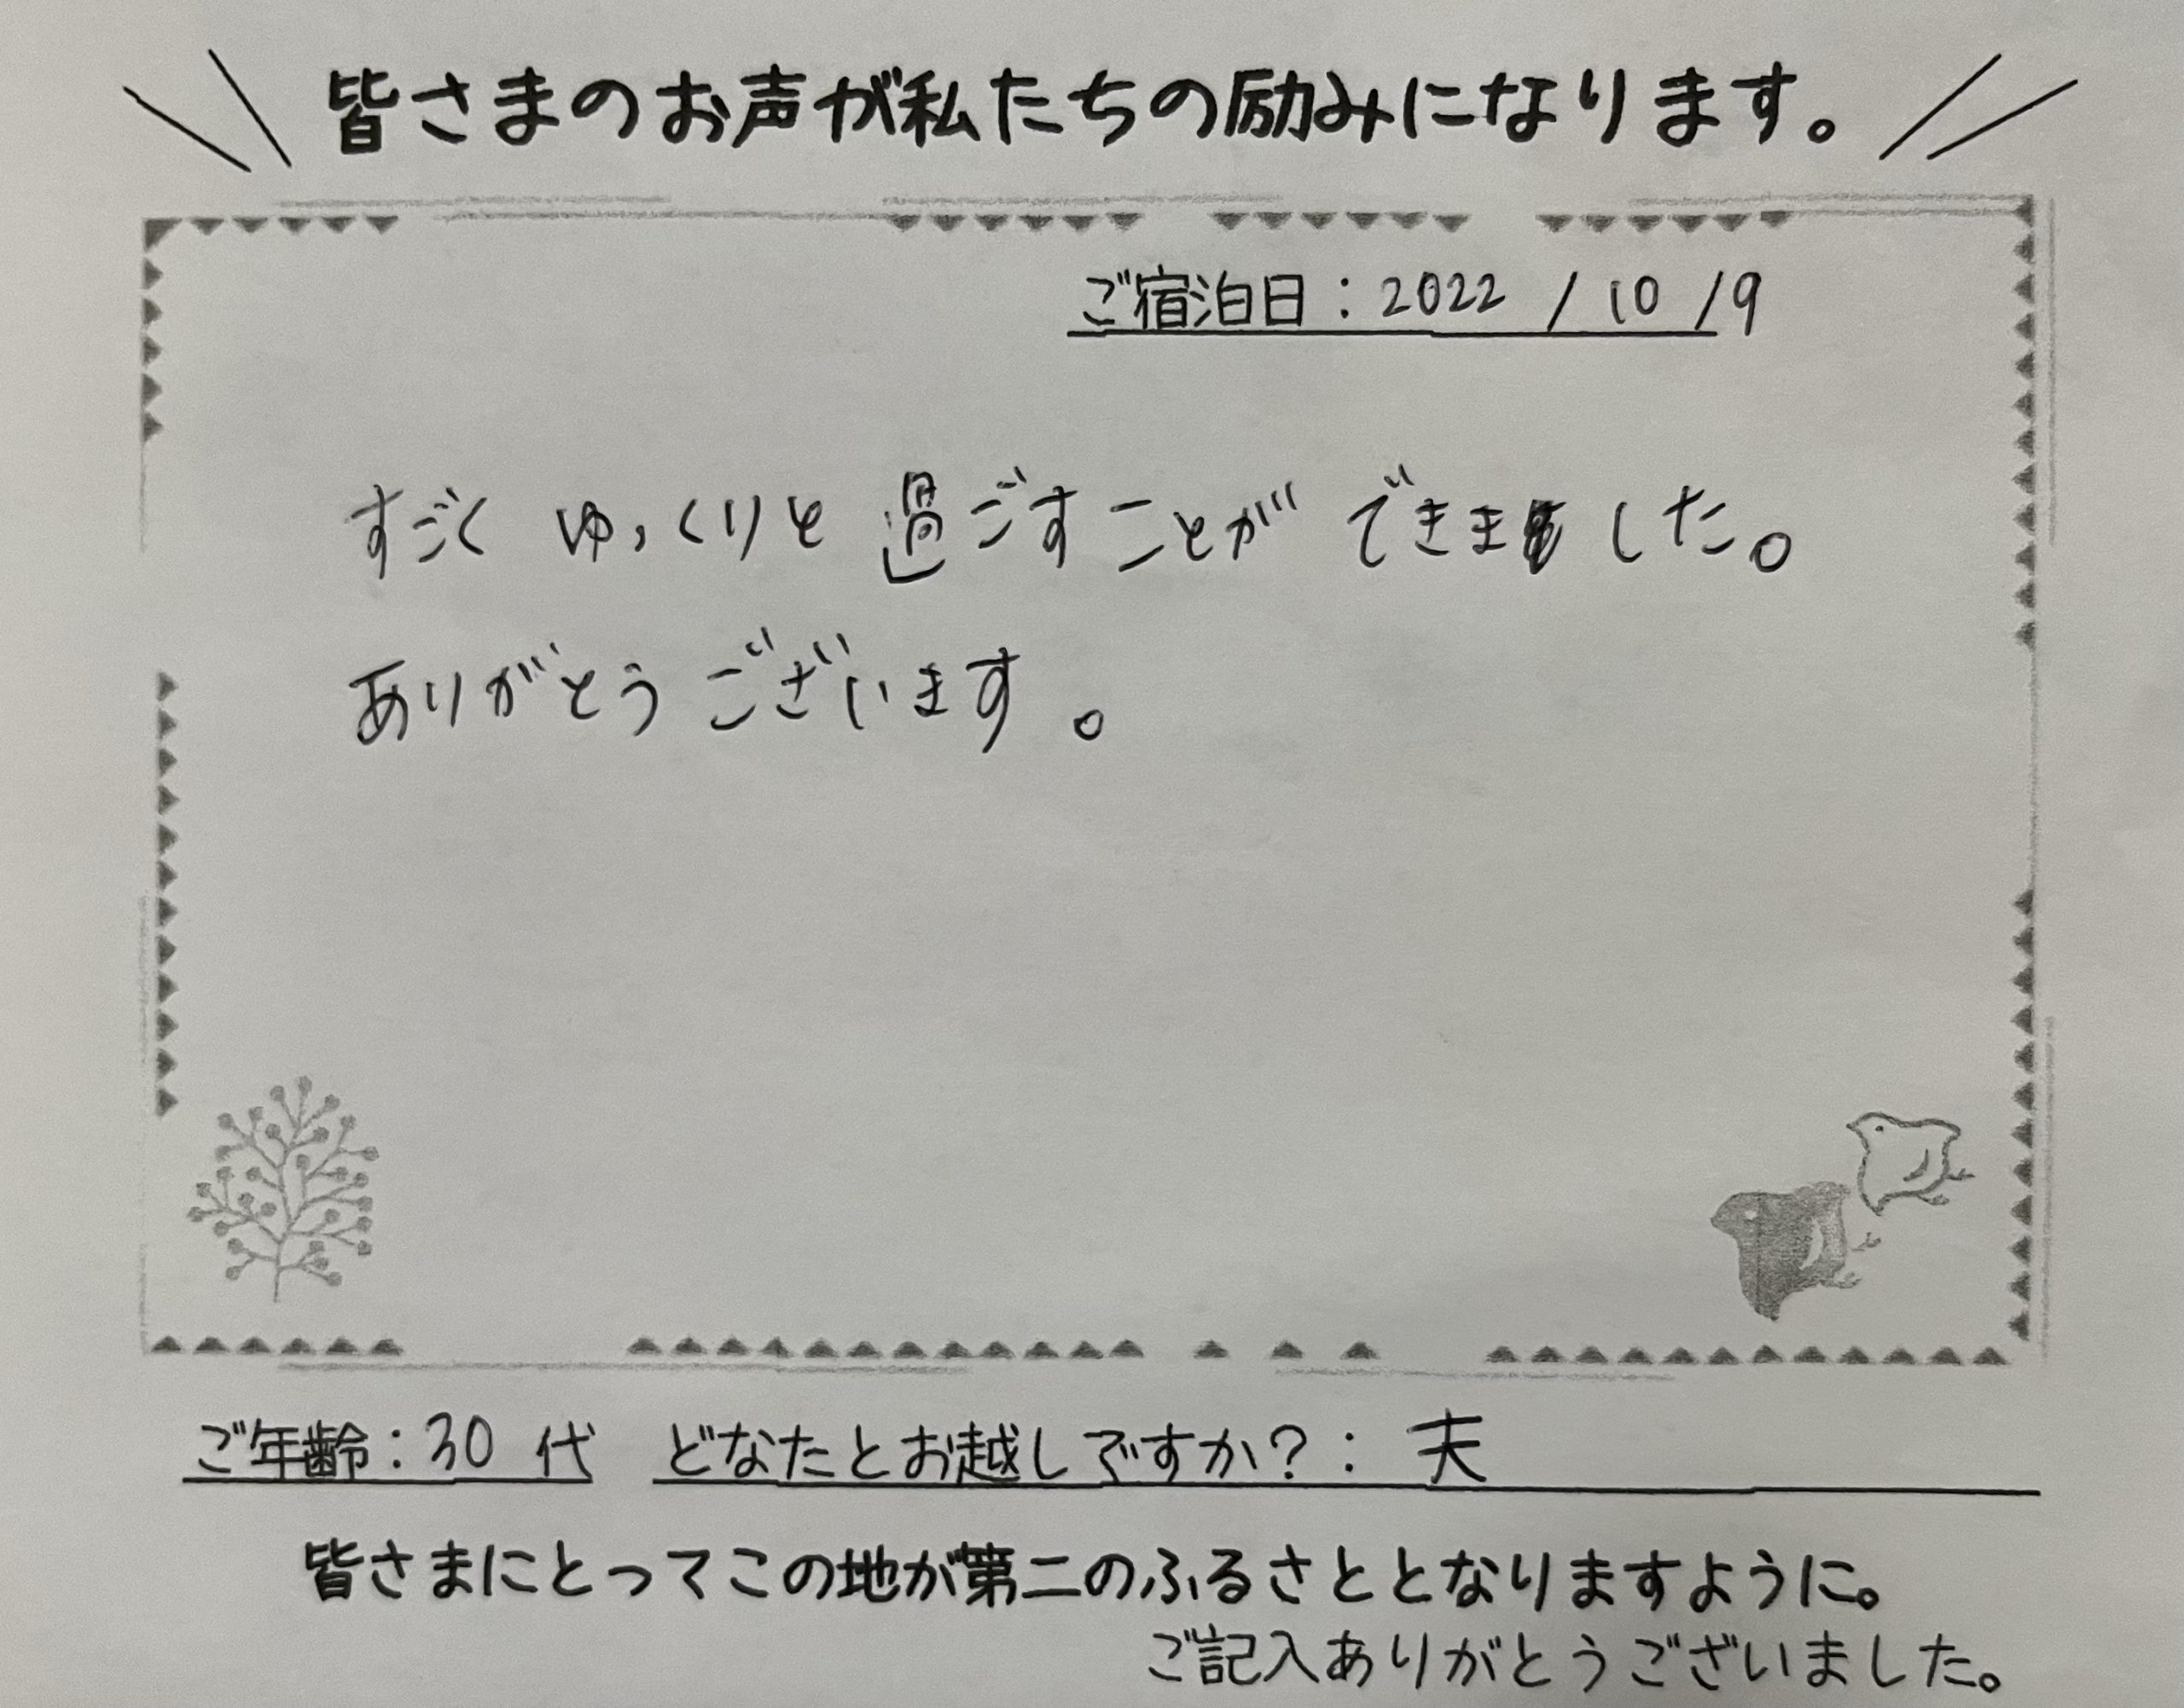 皆さまのお声が私たちの励みになります。
ご宿泊日：2022 / 10 / 9
すごく ゆっくりと 過ごすことが できました。
ありがとう ございます。
ご年齢：30 代 どなたとお越しですか？： 夫
皆さまにとってこの地が第二のふるさととなりますように。
ご記入ありがとうございました。